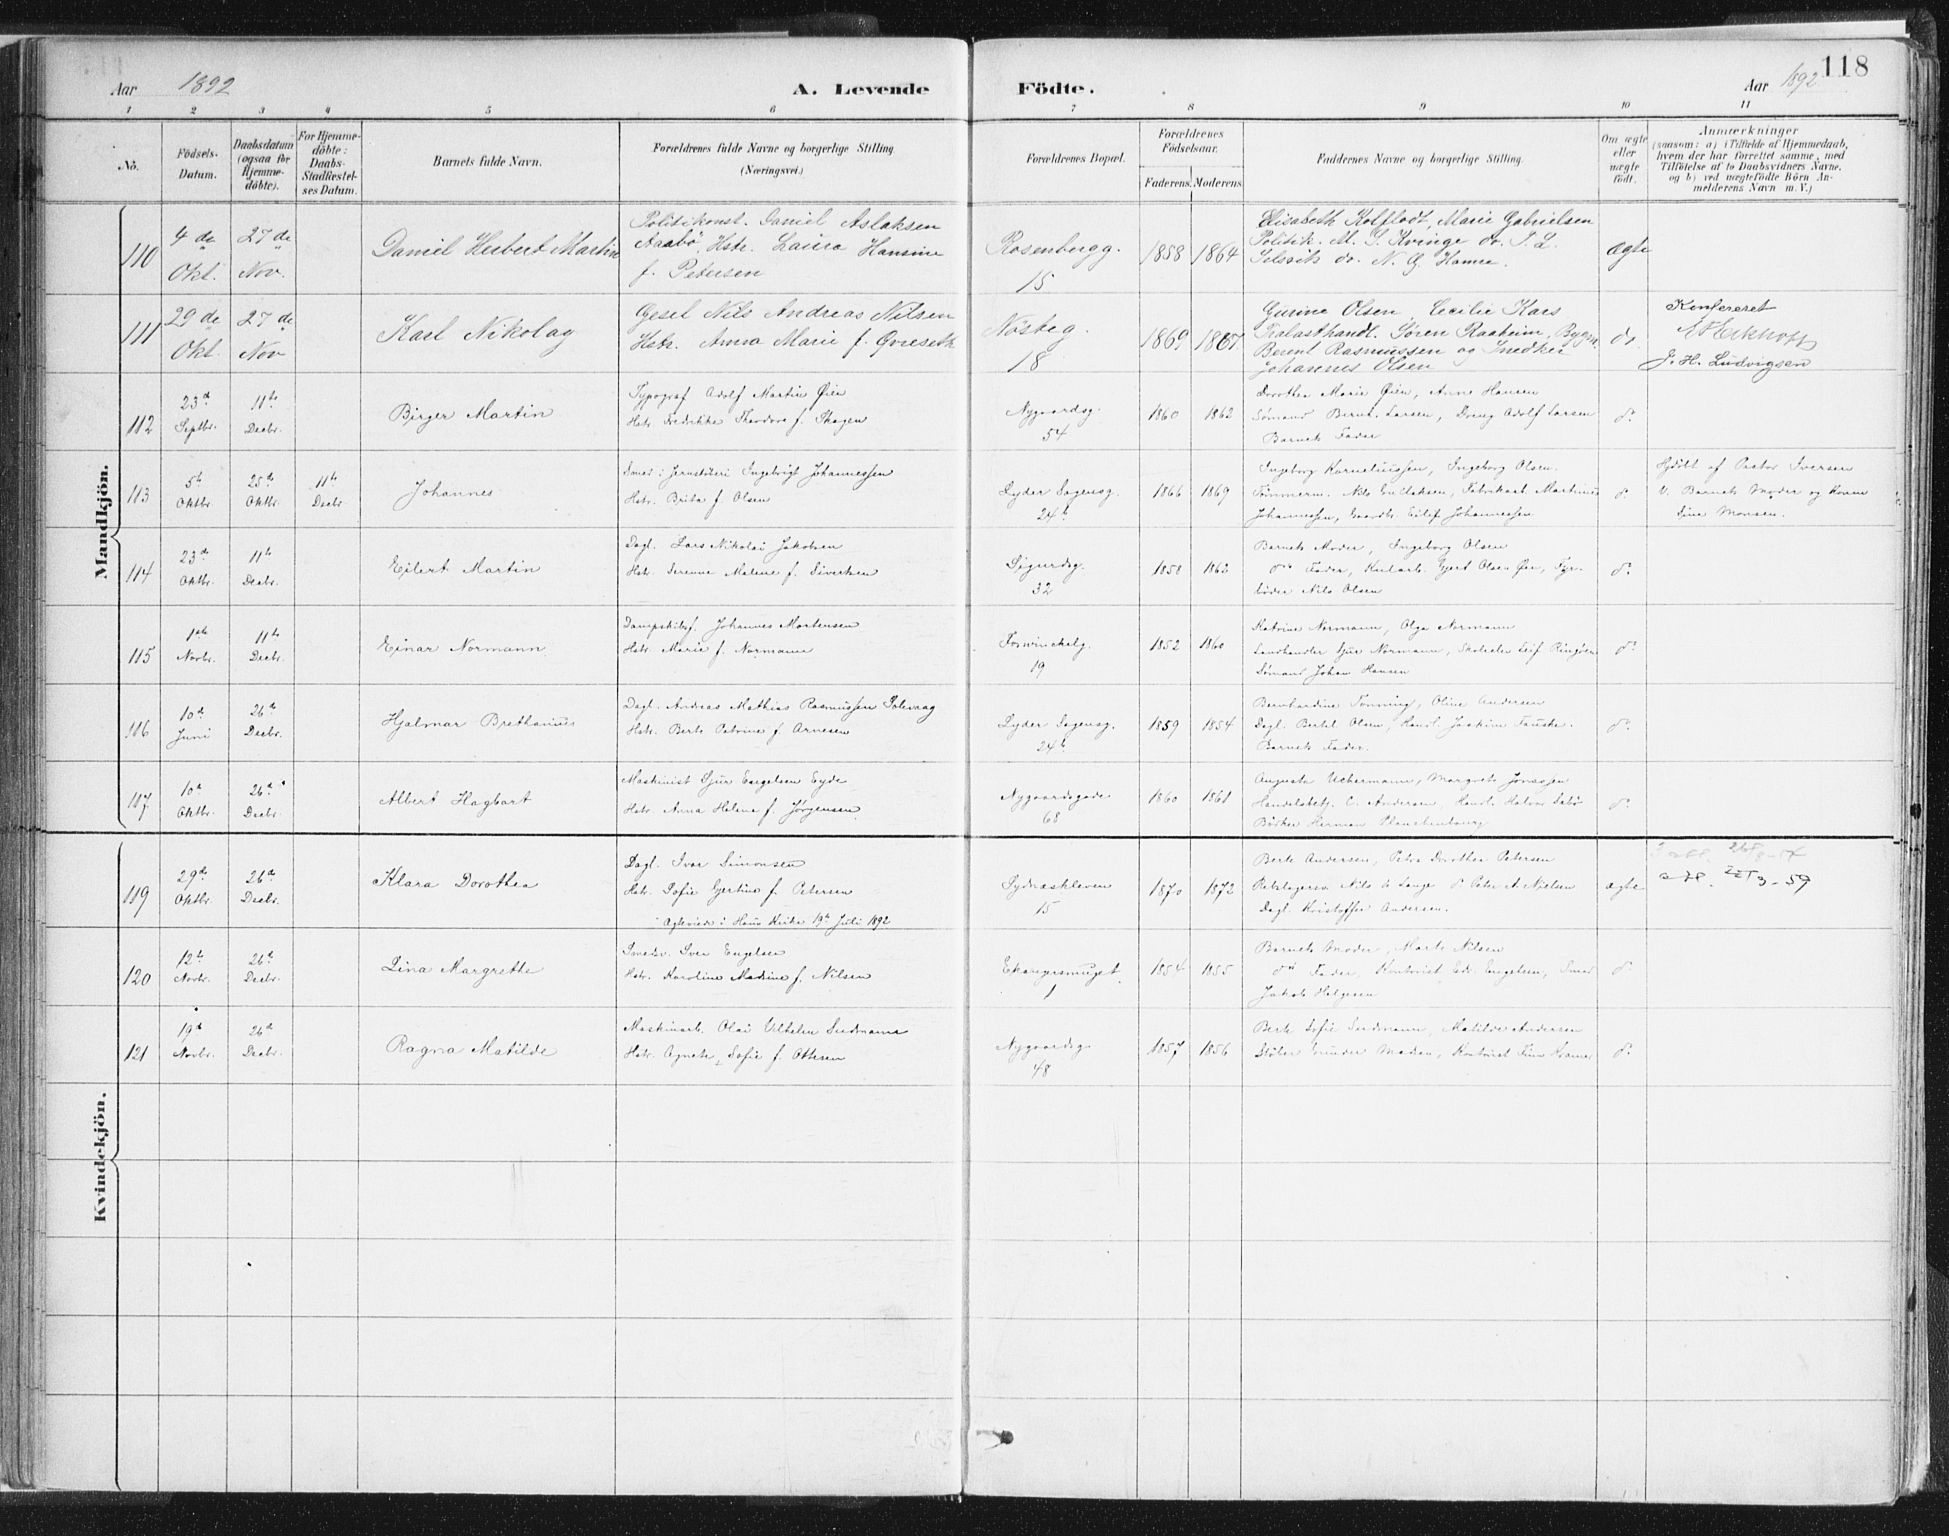 118
Aar 1892
A. Levende Födte.
Aar 1892
1 2 3 4 5 6 7 8 9 10 11
No.
Födsels-Datum.
Daabsdatum (ogsaa for Hjemme-döbte).
For Hjemme-döbte: Daabs-Stadfæstel-ses Datum.
Barnets fulde Navn.
Forældrenes fulde Navne og borgerlige Stilling (Næringsvei.)
Forældrenes Bopæl.
Forældrenes Födselsaar.
Faderens. Moderens.
Faddernes Navne og borgerlige Stilling.
Om ægte eller uægte födt.
Anmærkninger
(saasom: a) i Tilfælde af Hjemmedaab,
hvem der har forrettet samme, med
Tilföielse af to Daabsvidners Navne,
og b) ved uægtefödte Börn An-
melderens Navn m. V.)
Mandkjön.
110
4 de Okt.
27 de Nov.
Daniel Herbert Martin
Politikonst. Daniel Aslaksen
Aasbö, Hstr. Laura Hansine
f. Petersen
Rosenbergg.
15
1858 1864
Elisabeth Kolflodt, Marie Gabrielsen
Politik. M. S. Kvinge do. S. L.
do. N. G. Hamre.
ægte
111
29 de Okt.
27 de Nov
Karl Nikolay
Gesel Nils Andreas Nilsen
Hstr. Anna Marie f. Qvieseth
Nösteg.
18
1869 1867
Gurine Olsen, Cecilie Kars
Trelasthandl. Sören Raaheim, Bygm.
Berent Rasmussen og Snedker
Johannes Olsen
do
Konfereret
J. H. Ludvigsen
112
23d Septbr.
11te Decbr.
Birger Martin
Typograf Adolf Martin Øien
Hstr. Fredrikke Theodore f. Skogen
Nygaardsg.
54
1860 1862
Dorothea Marie Øien, Anne Hansen
Sømand Bernt Larsen, Dreng Adolf Larsen
Barnets Fader
do
113
5te Oktbr
25de Oktbr.
11te Decbr
Johannes
Smed i Jernstöberi Ingebrigt Johannessen
Hstr. Brita f. Olsen
Lyder Sagensg.
24b
1866 1869
Ingeborg Korneliussen, Ingeborg Olsen.
Tømmerm. Nils Gullaksen, Fabrikarb. Martinus
Johannessen, Gaardb. Eilef Johannessen
do
Hjdöbt af Pastor Iversen
V. Barnets Moder og Kone
Sine Monsen.
114
23de Oktbr.
11te Decbr.
Eilert Martin
Dagl. Lars Nikolai Jakobsen
Hstr. Serenne Malene f. Sivertsen
Sigurdsg.
32
1858 1862
Barnets Moder, Ingeborg Olsen
do Fader, Kularb. Gjert Olsen Øen, Fyr-
böder Nils Olsen
do
115
1ste Novbr.
11te Decbr.
Einar Normann
Dampskibsf. Johannes Mortensen
Hstr. Marie f. Normann
Foswinckelg.
19
1852 1860
Katrine Normann, Olga Normann
Landhandler Sjur Normann, Skoleelev Leif
Sømand Johan Hansen
do
116
10de Juni
26de Decbr.
Hjalmar Brethanius
Dagl. Andreas Mathias Rasmussen Solevaag
Hstr. Berte Petrine f. Arnesen
Lyder Sagensg.
24b
1859 1854
Bernhardine Tønning, Oline Andersen
Dagl. Bertel Olsen, Handl. Joakim Fauske.
Barnets Fader.
do
117
10de Oktbr.
26de Decbr.
Albert Hagbart
Maskinist Sjur Engelsen Eyde
Hstr. Anna Helene f. Jørgensen
Nygaardsgade
68
1860 1861
Augusta Uchermann, Margrete Jonssen
Handelsbetj. C. Andersen, Handl. Halvor Sebö
Bödker Herman Planckenbourg
do
Kvindekjön.
119
29de Oktbr.
26de Decbr.
Klara Dorothea
Dagl. Ivar Simonsen
Hstr. Sofie Gjertine f. Petersen
Ægteviede i Haus Kirke 19de Juli 1892
Sydneskleven
15
1870 1872
Berte Andersen, Petra Dorothea Petersen
Rebslagersv. Nils d. Lange do Peter A. Nielsen
Dagl. Kristoffer Andersen.
ægte
120
12te Novbr.
26de Decbr.
Lina Margrethe
Smedsv. Iver Engelsen
Hstr. Karoline Madsine f. Nilsen
1
1854 1855
Barnets Moder, Marte Nilsen
do Fader, Kontorist Edv. Engelsen, Smed
Jakob Helgesen
do
121
19de Novbr.
26de Decbr.
Ragna Matilde
Maskinarb. Olai Vilhelm Sundmann
Hstr. Agnete Sofie f. Ottesen
Nygaardsg.
48
1857 1856
Berte Sofie Sundmann, Matilde Andersen
Støber Gunder Madsen, Kontorist Finn Hamre
do